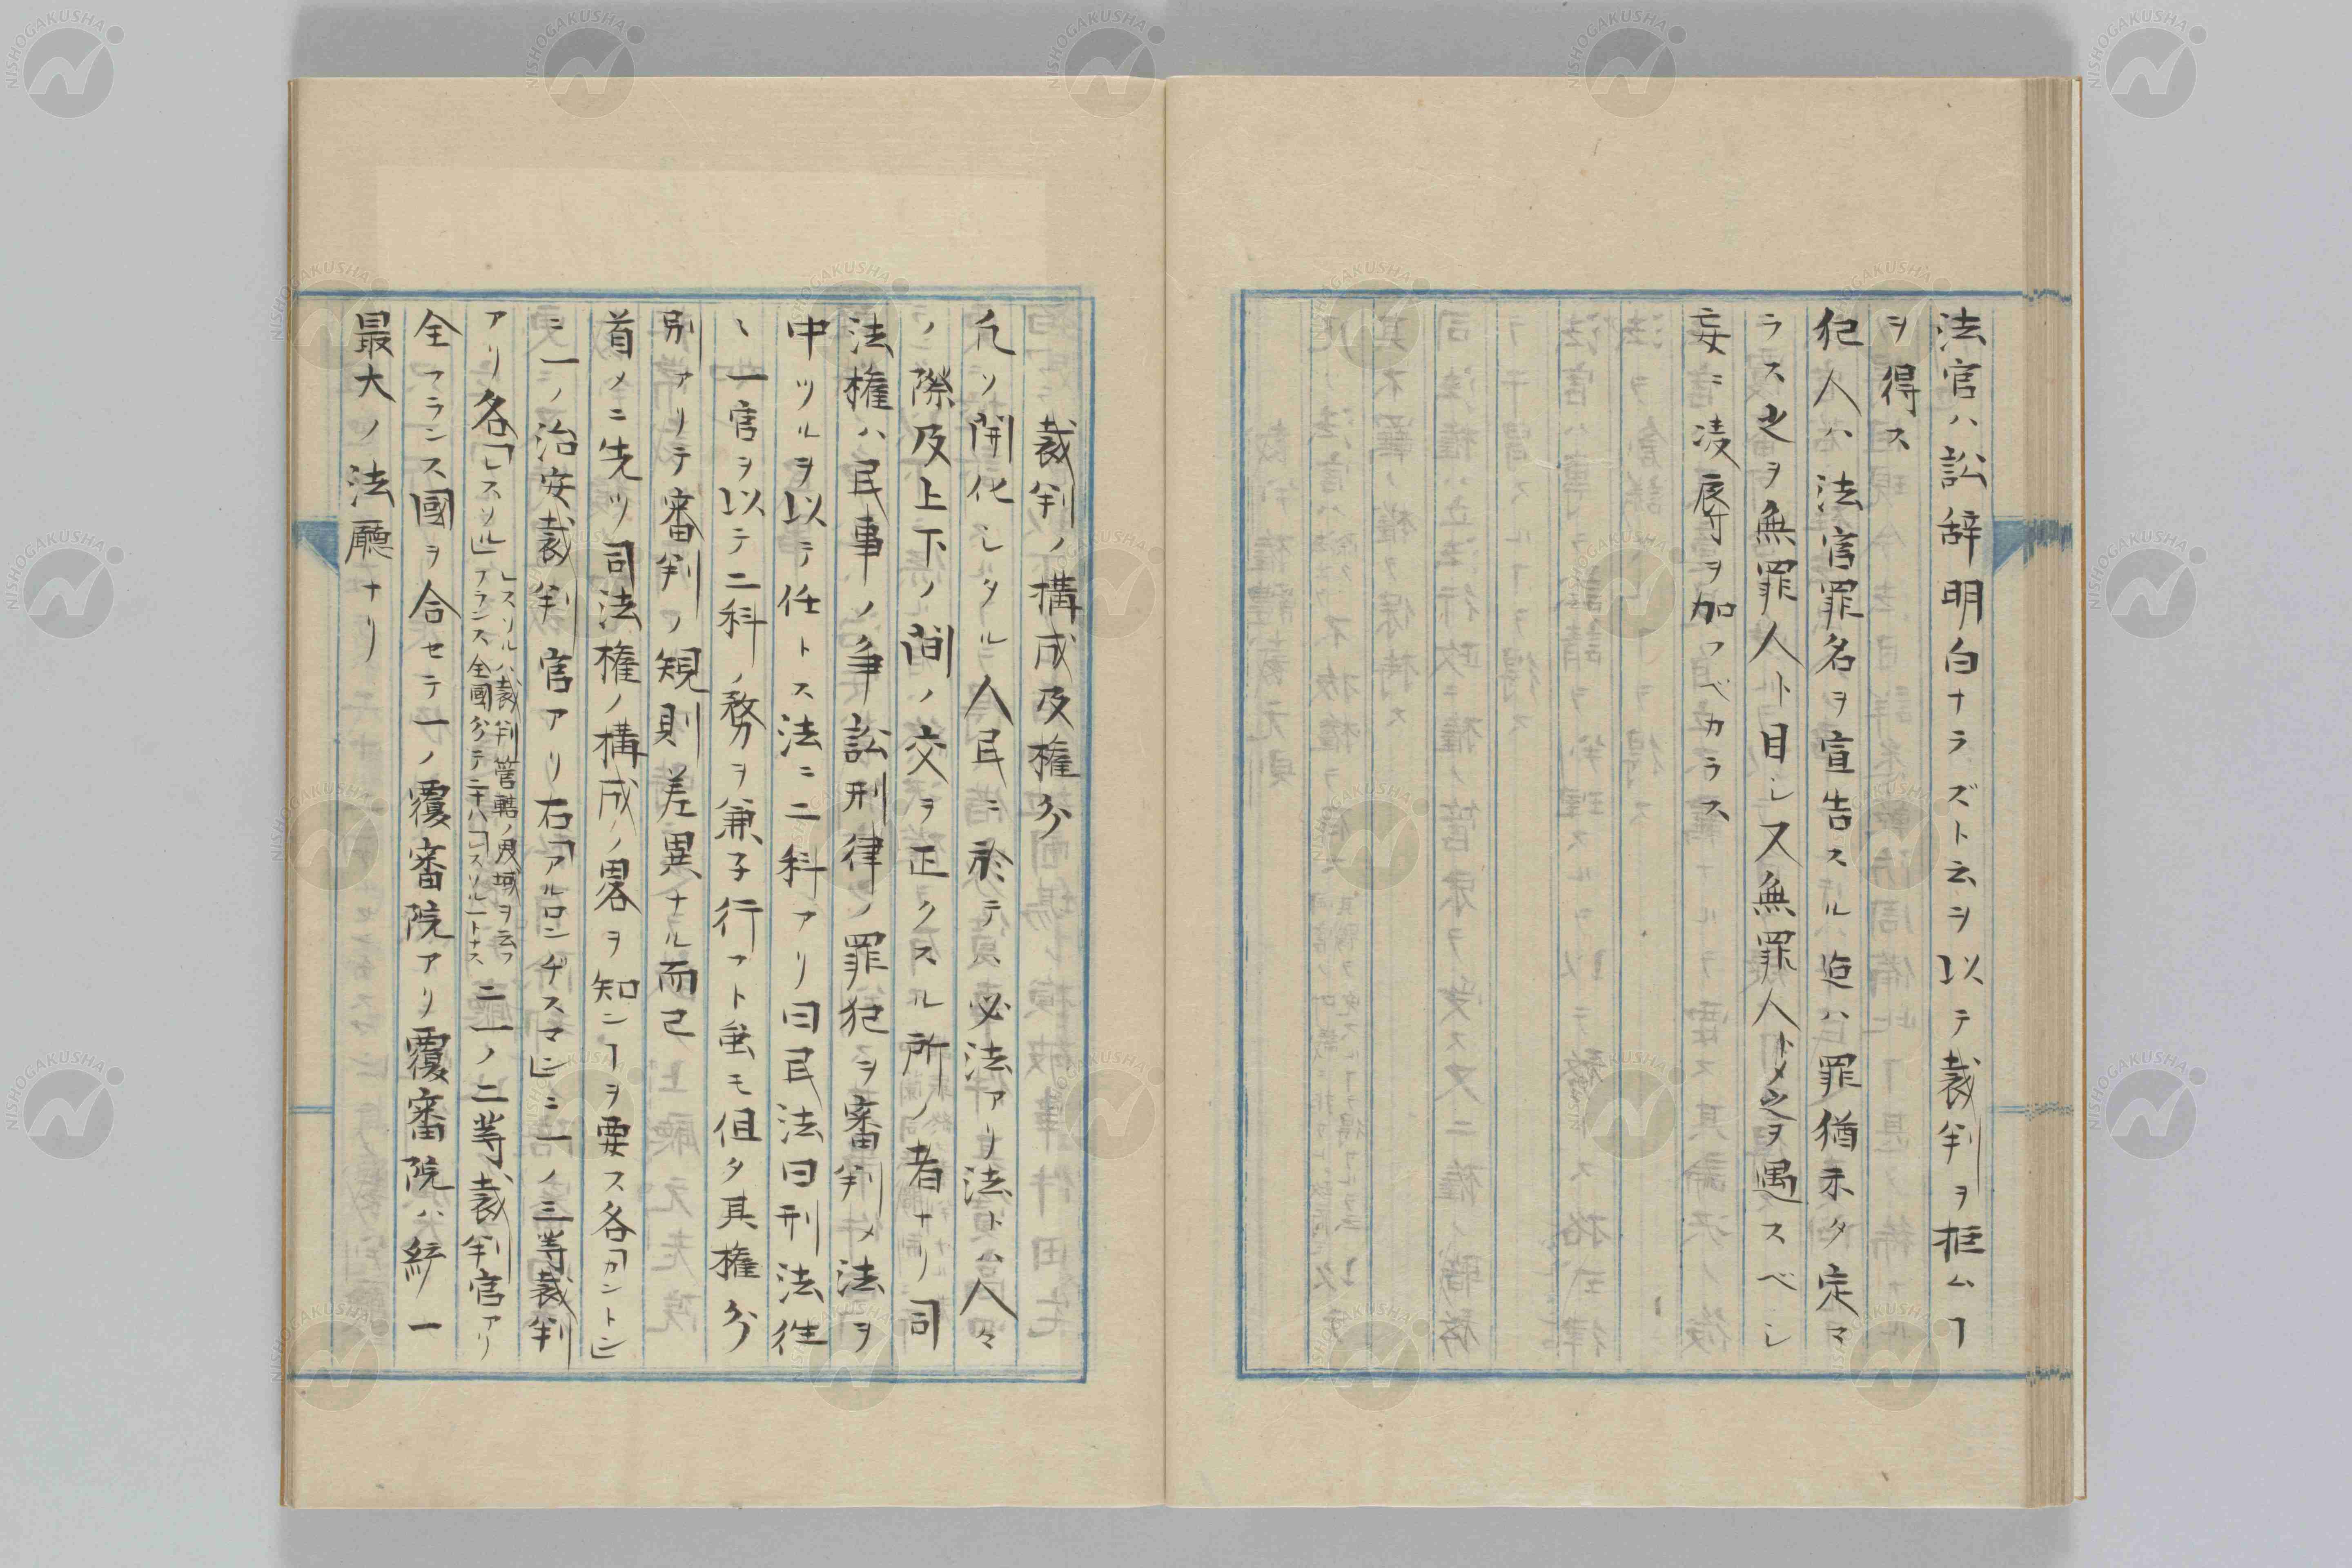 法官ハ訟辞明白ナラズト云ヲ以テ裁判ヲ拒ムヿ
ヲ得ス
犯人ハ法官罪名ヲ宣告スル迠ハ罪猶未タ定マ
ラス之ヲ無罪人ト目シ又無罪人トメ之ヲ遇スベシ
妄ニ凌辱ヲ加フベカラス
裁判ノ構成及権分
凢ソ開化シタル人民ニ於テハ必法アリ法トハ人々
ノ際及上下ノ間ノ交ヲ正クスル所ノ者ナリ司
法権ハ民事ノ争訟刑律ノ罪犯ヲ審判メ法ヲ
中ツルヲ以テ任トス法ニ二科アリ曰民法曰刑法徃
〻一官ヲ以テ二科ノ務ヲ兼子行フト雖モ但タ其権分
別アリテ審判ノ規則差異ナル而已
首メニ先ツ司法権ノ構成ノ畧ヲ知ンヿヲ要ス各「カントン」
ニ一ノ治安裁判官アリ右「アルロンヂスマン」ニ一ノ三等裁判
アリ各「レスソル」レスソルハ裁判管轄ノ区域ヲ云フ
フランス全國分テ二十八「レスソル」トナス二一ノ二等裁判官アリ
全フランス國ヲ合セテ一ノ覆審院アリ覆審院ハ統一
最大ノ法廳ナリ
NISHOGAKUSHA